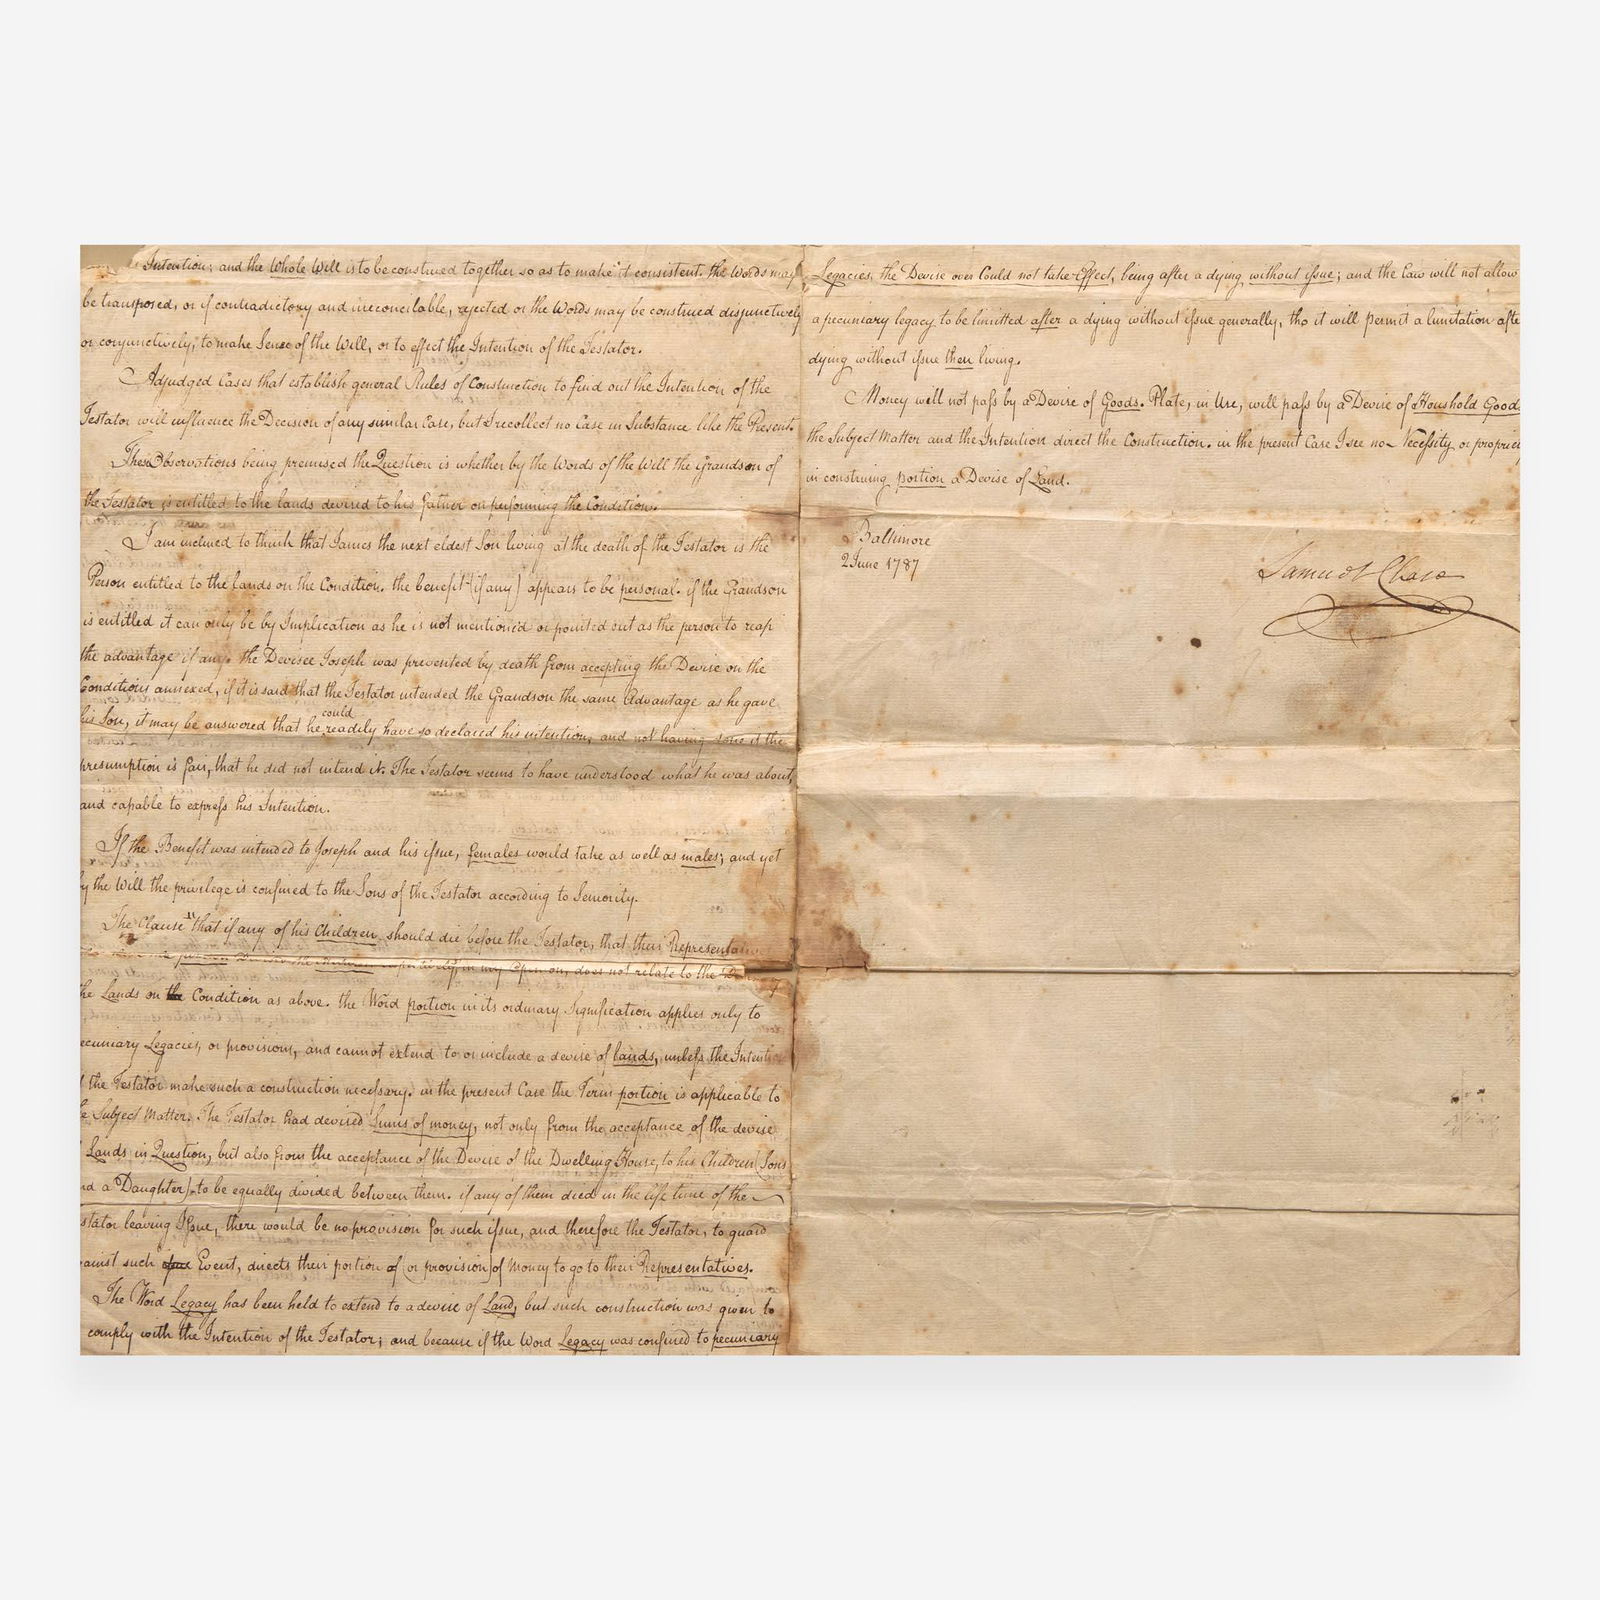 Intention; and the Whole Will is to be construed together so as to make it consistent. the Words may
be transposed, or if contradictory and irreconcilable, rejected or the Words may be construed disjunctively
or conjunctively, to make Sence of the Will, or to effect the Intention of the Testator.
Adjudged Cases that establish general Rules of Construction to find out the Intention of the
Testator will influence the Decision of any similar Case, but I recollect no Case in Substance like the Present.
These Observations being premised the Question is whether by the Words of the Will the Grandson of
the Testator is entitled to the lands devised to his Father on performing the Condition.
I am inclined to think that James the next eldest Son living at the death of the Testator is the
Person entitled to the lands on the Condition. the benefit (if any) appears to be personal. if the Grandson
is entitled it can only be by Implication as he is not mentioned or pointed out as the person to reap
the advantage if any. the Devisee Joseph was prevented by death from accepting the Devise on the
Conditions annexed, if it is said that the Testator intended the Grandson the same Advantage as he gave
his Son, it may be answered that he could readily have so declared his intention, and not having done it the
presumption is fair, that he did not intend it. The Testator seems to have understood what he was about,
and capable to expreſs his Intention.
If the Benefit was intended to Joseph and his iſsue, females would take as well as males; and yet
by the Will the priviledge is confined to the Sons of the Testator according to Seniority.
The Clause "that if any of his Children should die before the Testator, that their Representatives
in my Opinion, does not relate to the
the Lands on the Condition as above. the Word portion in its ordinary Signification applies only to
ecuniary Legacies, or provisions, and cannot extend to or include a devise of lands, unleſs the Intention
the Testator make such a construction neceſsary. in the present Case the Term portion is applicable to
e Subject Matter. The Testator had devised Sums of money, not only from the acceptance of the devise
Lands in Question, but also from the acceptance of the Devise of the Dwelling House, to his Children (Sons
nd a Daughter) to be equally divided between them. if any of them died in the life time of the
stator leaving Iſsue, there would be no provision for such iſsue, and therefore the Testator, to guard
ainst such Event, directs their portion of (or provision) of Money to go to their Representatives.
The Word Legacy has been held to extend to a devise of Land, but such construction was given to
comply with the Intention of the Testator; and because if the Word Legacy was confined to pecuniary
Legacies, the Devise over Could not take Effect, being after a dying without iſsue; and the Law will not allow
a pecuniary legacy to be limitted after a dying without iſsue generally, tho it will permit a limitation afte
dying without iſsue then living.
Money will not paſs by a Devise of Goods. Plate, in Use, will paſs by a Devise of Houshold Goods
the Subject Matter and the Intention direct the Construction. in the present Case I see no Neceſsity or propriet
in construing portion a Devise of Land.
Baltimore
2 June 1787
Samuel Chase